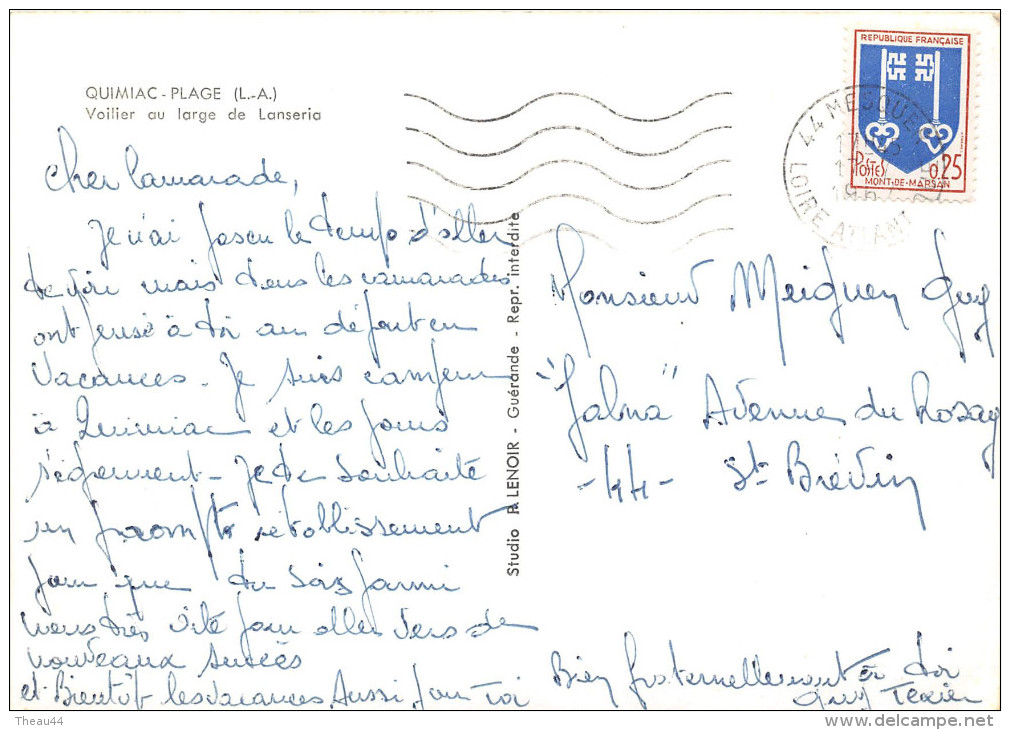 QUIMIAC - PLAGE (L.-A.)
Voilier au large de Lanseria
REPUBLIQUE FRANÇAISE
POSTES 0,25
MONT-DE-MARSAN
44 MESQUER
LOIRE ATLANT
Cher Camarade,
Je n'ai pas eu le temps d'aller
te voir mais tous les camarades
ont pensé à toi au départ en
Vacances. Je suis campeur
à Quimiac et les jours
s'égrennent - Je te souhaite
un prompt rétablissement
pour que tu sois parmi
nous très vite pour aller vers de
nouveaux succès
et Bientôt les vacances Aussi pour toi
Bien fraternellement à toi
Guy Texier
Studio P. LENOIR - Guérande - Repr. interdite
Monsieur Meignen Guy
Avenue du Rosay
- 44 - St Brévin
Theau44
delcampe.net